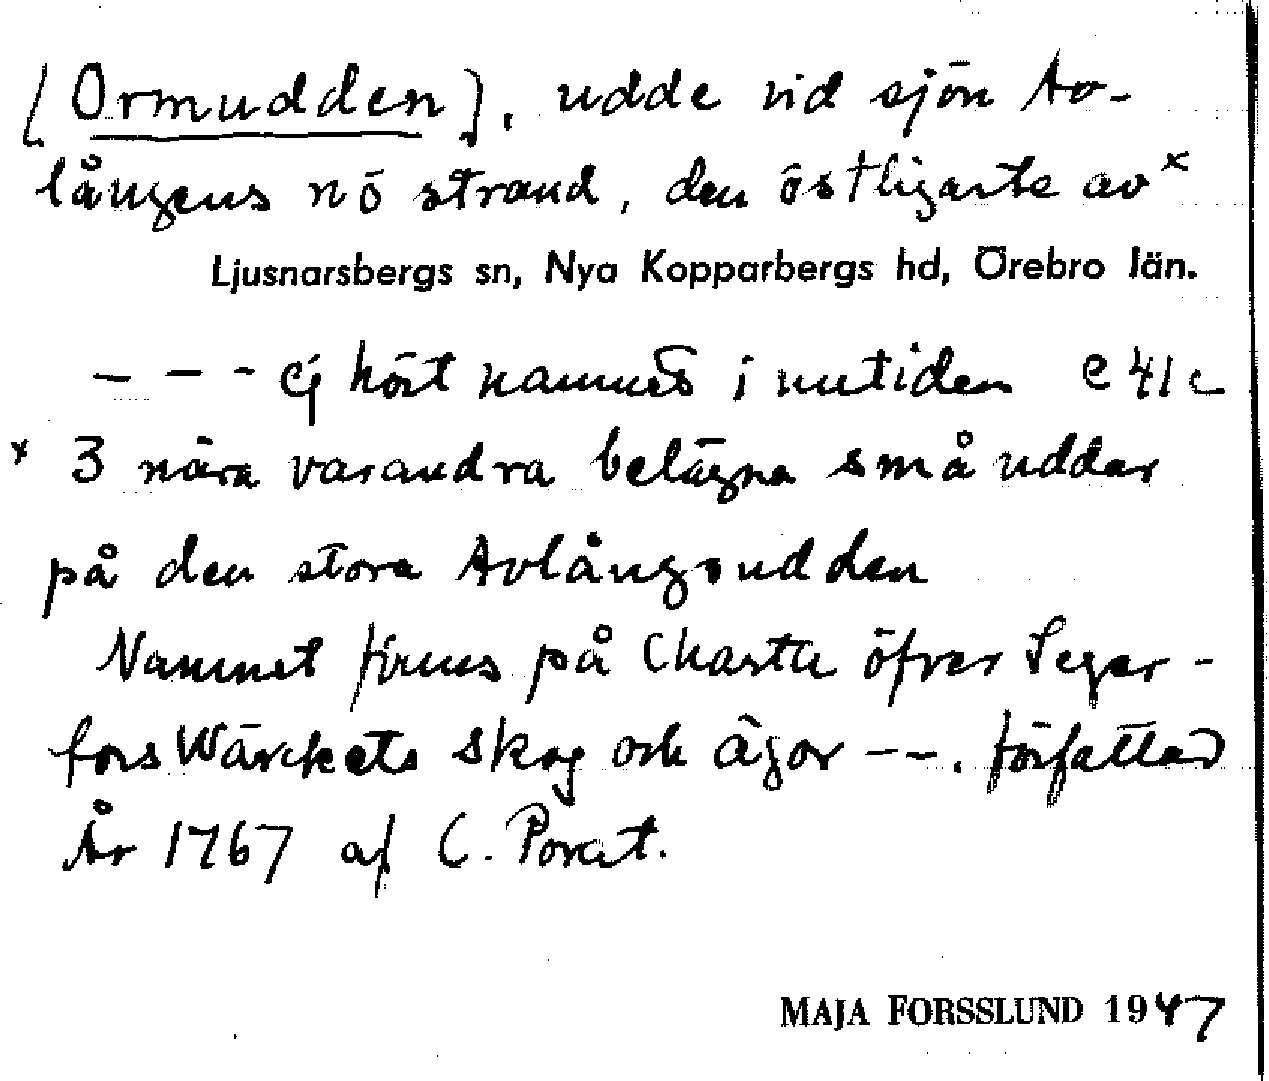 [Ormudden], udde vid sjön Av-
långens nö strand, den östligaste av x
Ljusnarsbergs sn, Nya Kopparbergs hd, Örebro län.
- - - Ej hört namnet i nutiden e 41 c
x 3 nära varandra belägna små uddar
på den stora Avlångsudden
Namnet finns på Charta öfver Seger-
fors Wärckets skog och ägor --. författad
År 1767 af C. Porat.
MAJA FORSSLUND 1947